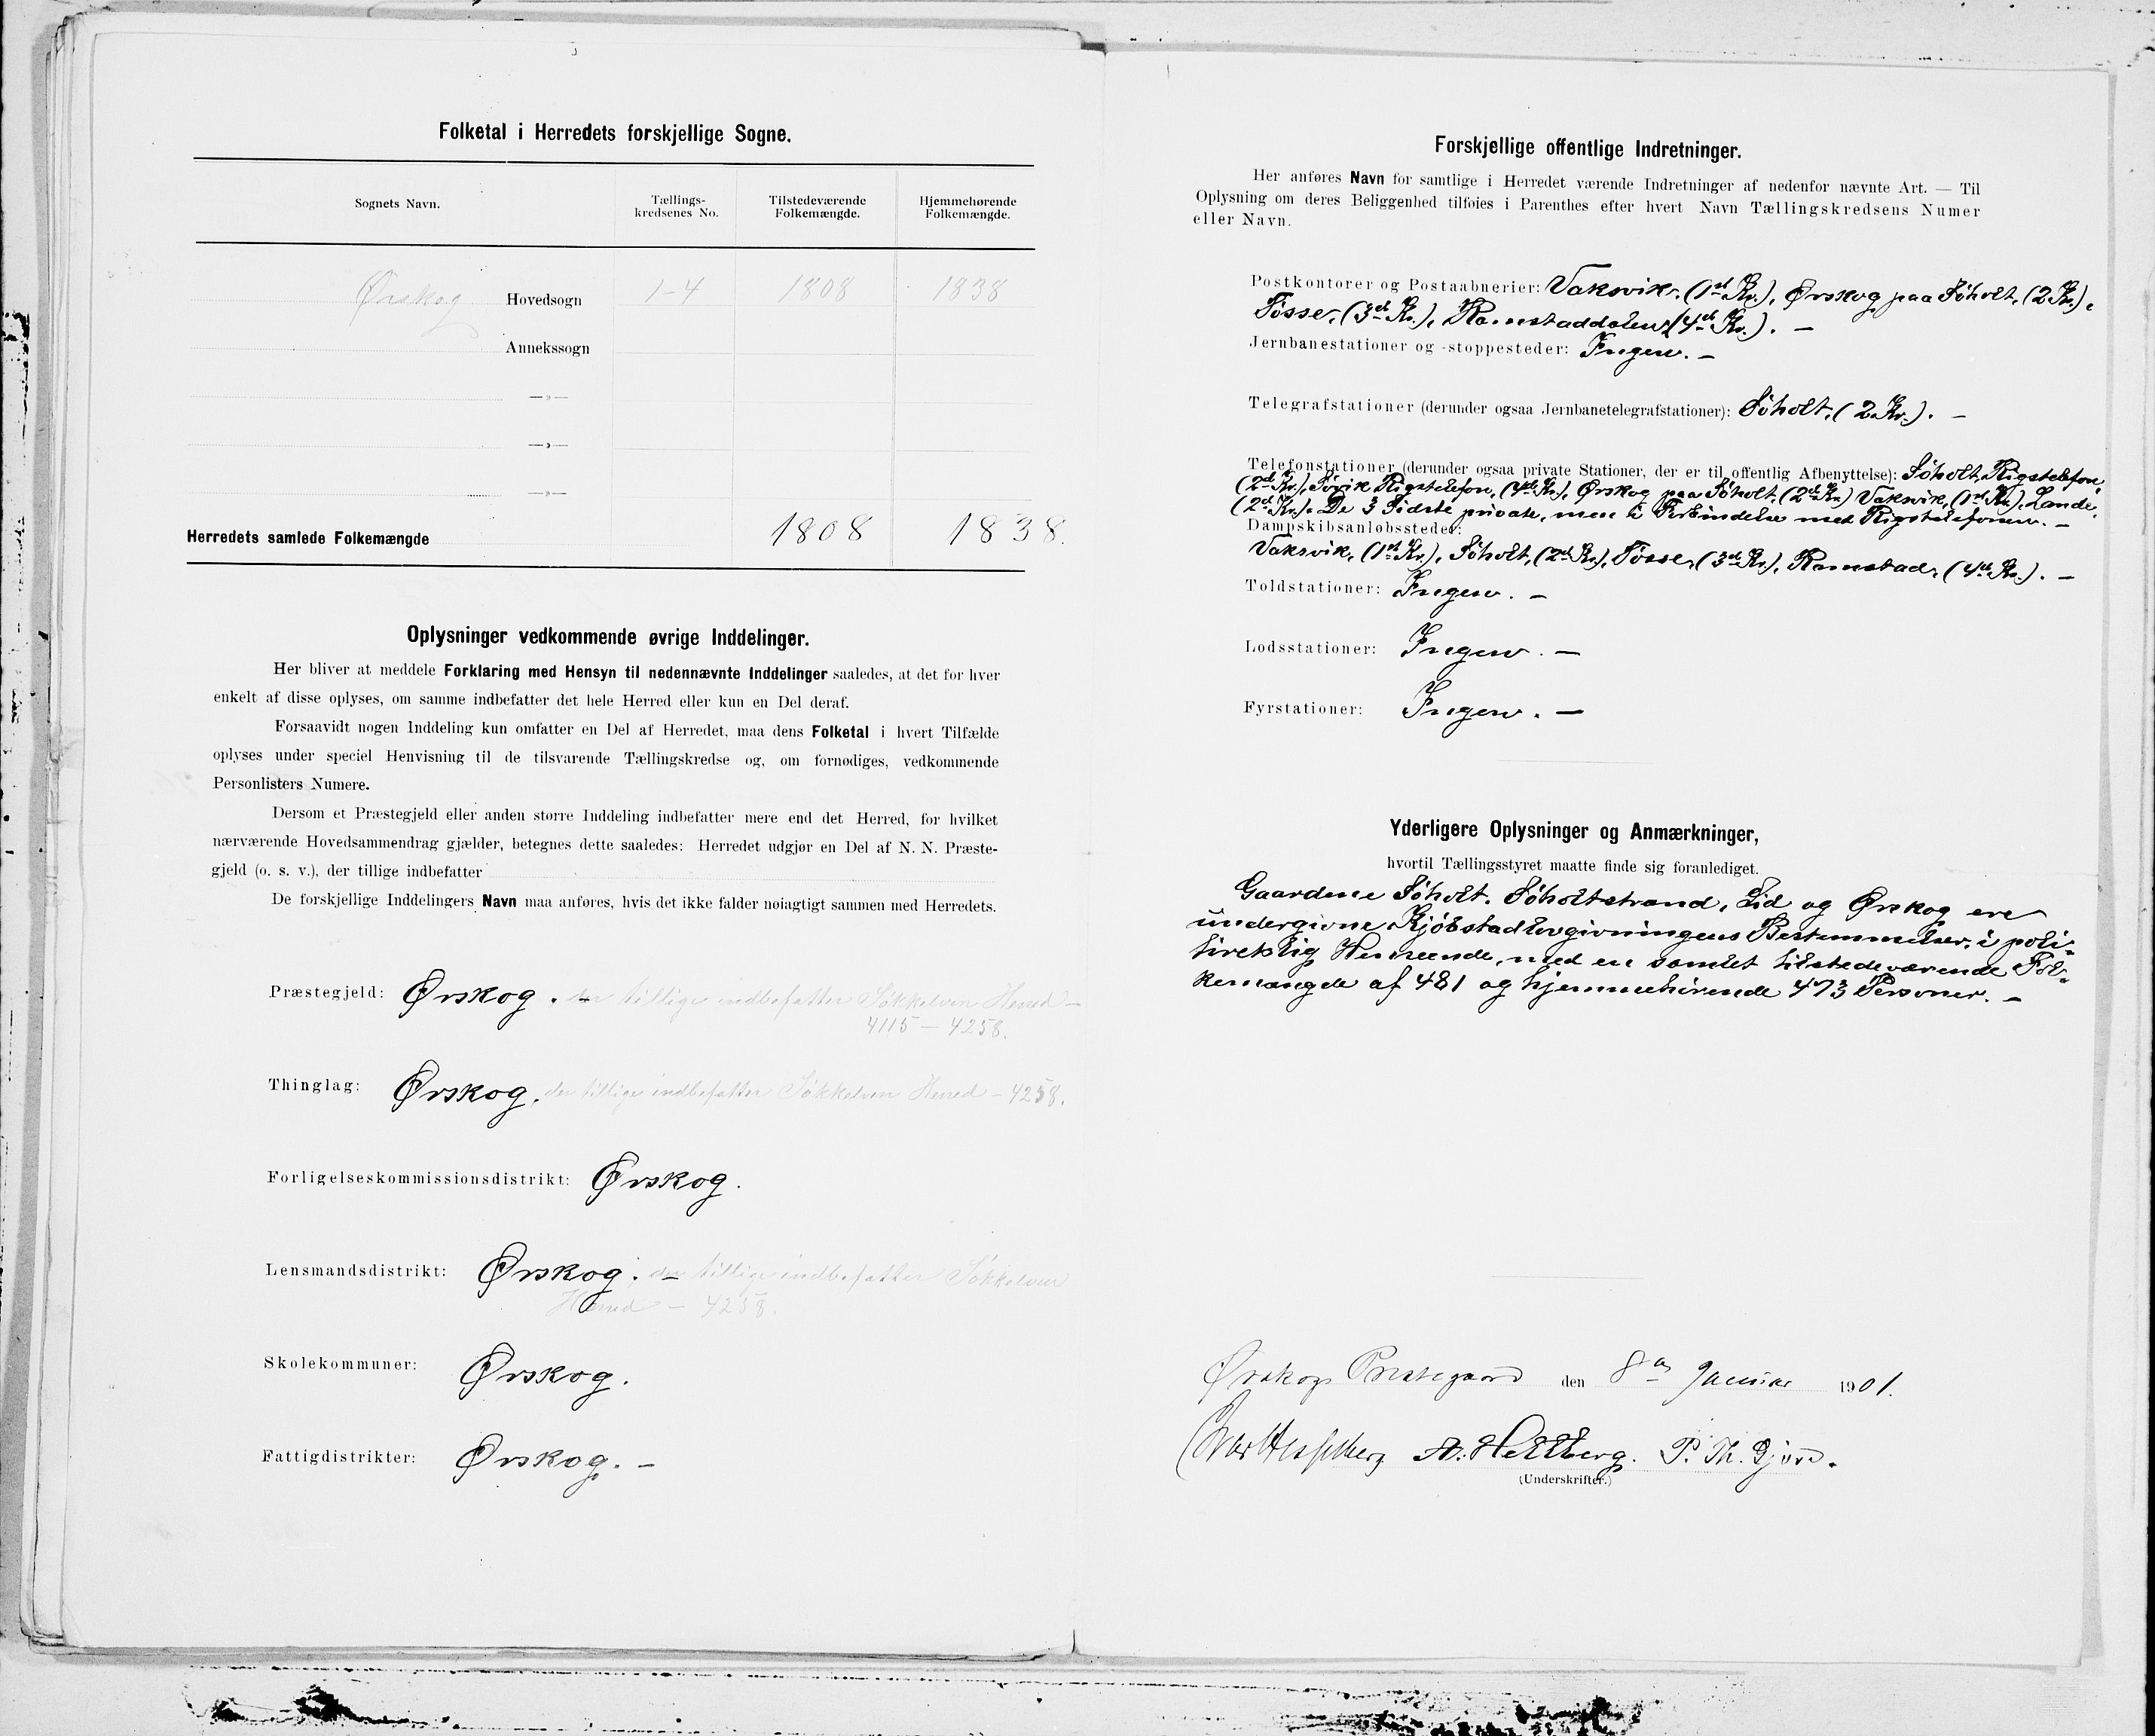 Folketal i Herredets forskjellige Sogne.
Sognets Navn. Tællings-kredsenes No. Tilstedeværende Folkemængde. Hjemmehørende Folkemængde.
Ørskog Hovedsogn 1-4 1808 1838
Annekssogn
— » —
— » —
— » —
Herredets samlede Folkemængde 1808 1838.
Oplysninger vedkommende øvrige Inddelinger.
Her bliver at meddele Forklaring med Hensyn til nedennævnte Inddelinger saaledes, at det for hver
enkelt af disse oplyses, om samme indbefatter det hele Herred eller kun en Del deraf.
Forsaavidt nogen Inddeling kun omfatter en Del af Herredet, maa dens Folketal i hvert Tilfælde
oplyses under speciel Henvisning til de tilsvarende Tællingskredse og, om fornødiges, vedkommende
Personlisters Numere.
Dersom et Præstegjeld eller anden større Inddeling indbefatter mere end det Herred, for hvilket
nærværende Hovedsammendrag gjælder, betegnes dette saaledes: Herredet udgjør en Del af N. N. Præste-
gjeld (o. s. v.), der tillige indbefatter
De forskjellige Inddelingers Navn maa anføres, hvis det ikke falder nøiagtigt sammen med Herredets.
Præstegjeld: Ørskog. – der tillige indbefatter Søkkelven Herred –
4115 – 4258.
Thinglag: Ørskog. der tillige indbefatter Søkkelven Herred – 4258.
Forligelseskommissionsdistrikt: Ørskog.
Lensmandsdistrikt: Ørskog. – der tillige indbefatter Søkkelven
Herred – 4258.
Skolekommuner: Ørskog.
Fattigdistrikter: Ørskog. –
Forskjellige offentlige Indretninger.
Her anføres Navn for samtlige i Herredet værende Indretninger af nedenfor nævnte Art. — Til
Oplysning om deres Beliggenhed tilføies i Parenthes efter hvert Navn Tællingskredsens Numer
eller Navn.
Postkontorer og Postaabnerier: Vaksvik, (1st Kr.), Ørskog paa Søholt, (2 Kr.),
Tøsse, (3d Kr.), Ramstaddalen, (4d Kr.). –
Jernbanestationer og -stoppesteder: Ingen. –
Telegrafstationer (derunder ogsaa Jernbanetelegrafstationer): Søholt, (2 Kr.). –
Telefonstationer (derunder ogsaa private Stationer, der er til offentlig Afbenyttelse): Søholt, Rigstelefon,
(2d Kr.), Søvik Rigstelefon, (4d Kr.), Ørskog paa Søholt, (2d Kr.) Vaksvik, (1st Kr.), Lande,
(2d Kr.). De 3 Sidste private, men i Forbindelse med Rigstelefonen. –
Dampskibsanløbssteder:
Vaksvik, (1st Kr.), Søholt, (2d Kr.), Tøsse, (3d Kr.), Ramstad, (4d Kr.). –
Toldstationer: Ingen. –
Lodsstationer: Ingen. –
Fyrstationer: Ingen. –
Yderligere Oplysninger og Anmærkninger,
hvortil Tællingsstyret maatte finde sig foranlediget.
Gaardene Søholt, Søholtstrand, Lid og Ørskog ere
undergivne Kjøbstadlovgivningens Bestemmelser i poli-
tiretslig Henseende, med en samlet tilstedeværende Fol-
kemængde af 481 og hjemmehørende 473 Personer. –
Ørskogs Prestegaard den 8de Januar 1901.
A. Hellberg. P. Th.
(Underskrifter.)